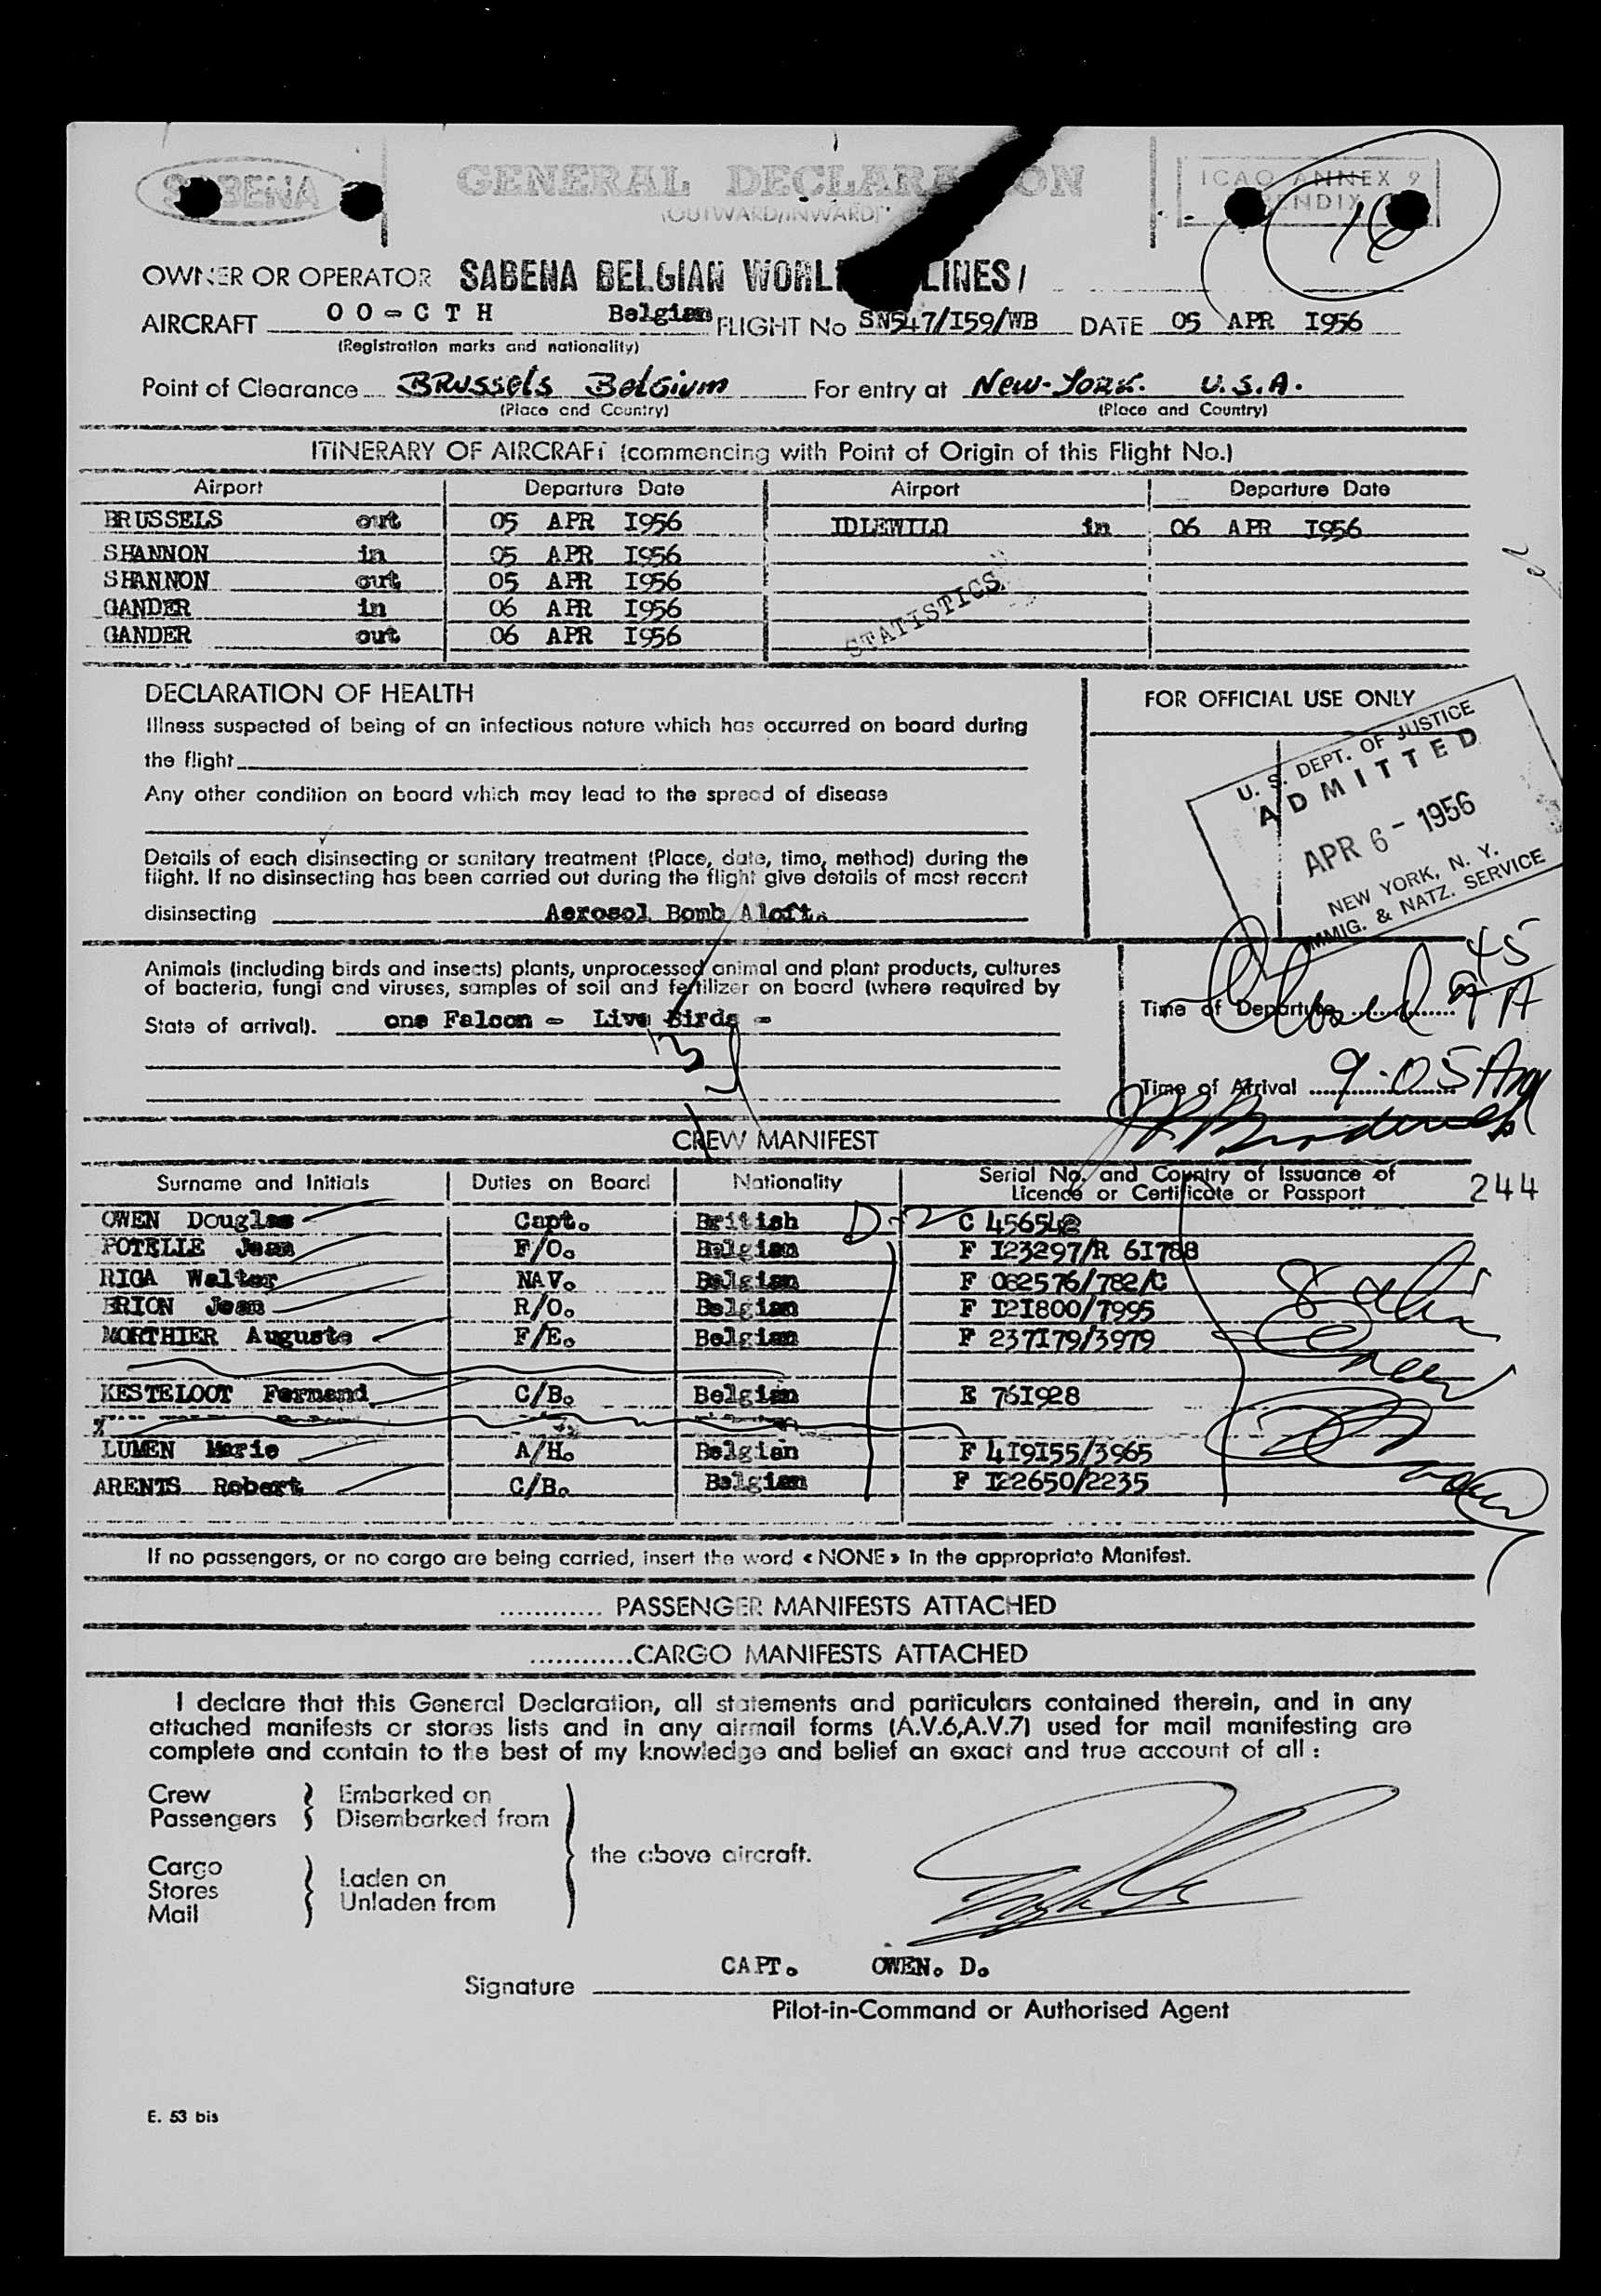 SABENA
GENERAL DECLARATION
(OUTWARD/INWARD)
ICAO ANNEX 9
16
OWNER OR OPERATOR SABENA BELGIAN WORL LINES/
AIRCRAFT OO-CTH Belgian FLIGHT No SN547/I59/WB DATE 05 APR I956
(Registration marks and nationality)
Point of Clearance BRUSSELS BELGIUM For entry at NEW-YORK. U.S.A.
(Place and Country) (Place and Country)
ITINERARY OF AIRCRAFT (commencing with Point of Origin of this Flight No.)
Airport Departure Date Airport Departure Date
BRUSSELS out 05 APR I956 IDLEWILD in 06 APR I956
SHANNON in 05 APR I956
SHANNON out 05 APR I956
GANDER in 06 APR I956
GANDER out 06 APR I956
STATISTICS
DECLARATION OF HEALTH
FOR OFFICIAL USE ONLY
Illness suspected of being of an infectious nature which has occurred on board during
the flight
Any other condition on board which may lead to the spread of disease
Details of each disinsecting or sanitary treatment (Place, date, time, method) during the
flight. If no disinsecting has been carried out during the flight give details of most recent
disinsecting Aerosol Bomb Aloft.
U. S. DEPT. OF JUSTICE
ADMITTED
APR 6 - 1956
NEW YORK, N. Y.
IMMIG. & NATZ. SERVICE
Animals (including birds and insects) plants, unprocessed animal and plant products, cultures
of bacteria, fungi and viruses, samples of soil and fertilizer on board (where required by
State of arrival). one Falcon - Live Birds -
Time of Departure
Time of Arrival 9.05 AM
CREW MANIFEST
Surname and Initials Duties on Board Nationality Serial No. and Country of Issuance of
Licence or Certificate or Passport
244
OWEN Douglas Capt. British D-2 C 456542
POTELLE Jean F/O. Belgian F I23297/R 6I788
RIGA Walter NAV. Belgian F 082576/782/C
BRION Jean R/O. Belgian F I2I800/7995
MORTHIER Auguste F/E. Belgian F 237I79/3979
KESTELOOT Fernand C/B. Belgian E 76I928
LUMEN Marie A/H. Belgian F 4I9I55/3965
ARENTS Robert C/B. Belgian F I22650/2235
If no passengers, or no cargo are being carried, insert the word « NONE » in the appropriate Manifest.
............ PASSENGER MANIFESTS ATTACHED
............CARGO MANIFESTS ATTACHED
I declare that this General Declaration, all statements and particulars contained therein, and in any
attached manifests or stores lists and in any airmail forms (A.V.6,A.V.7) used for mail manifesting are
complete and contain to the best of my knowledge and belief an exact and true account of all :
Crew Embarked on
Passengers Disembarked from
the above aircraft.
Cargo Laden on
Stores Unladen from
Mail
CAPT. OWEN. D.
Signature
Pilot-in-Command or Authorised Agent
E. 53 bis